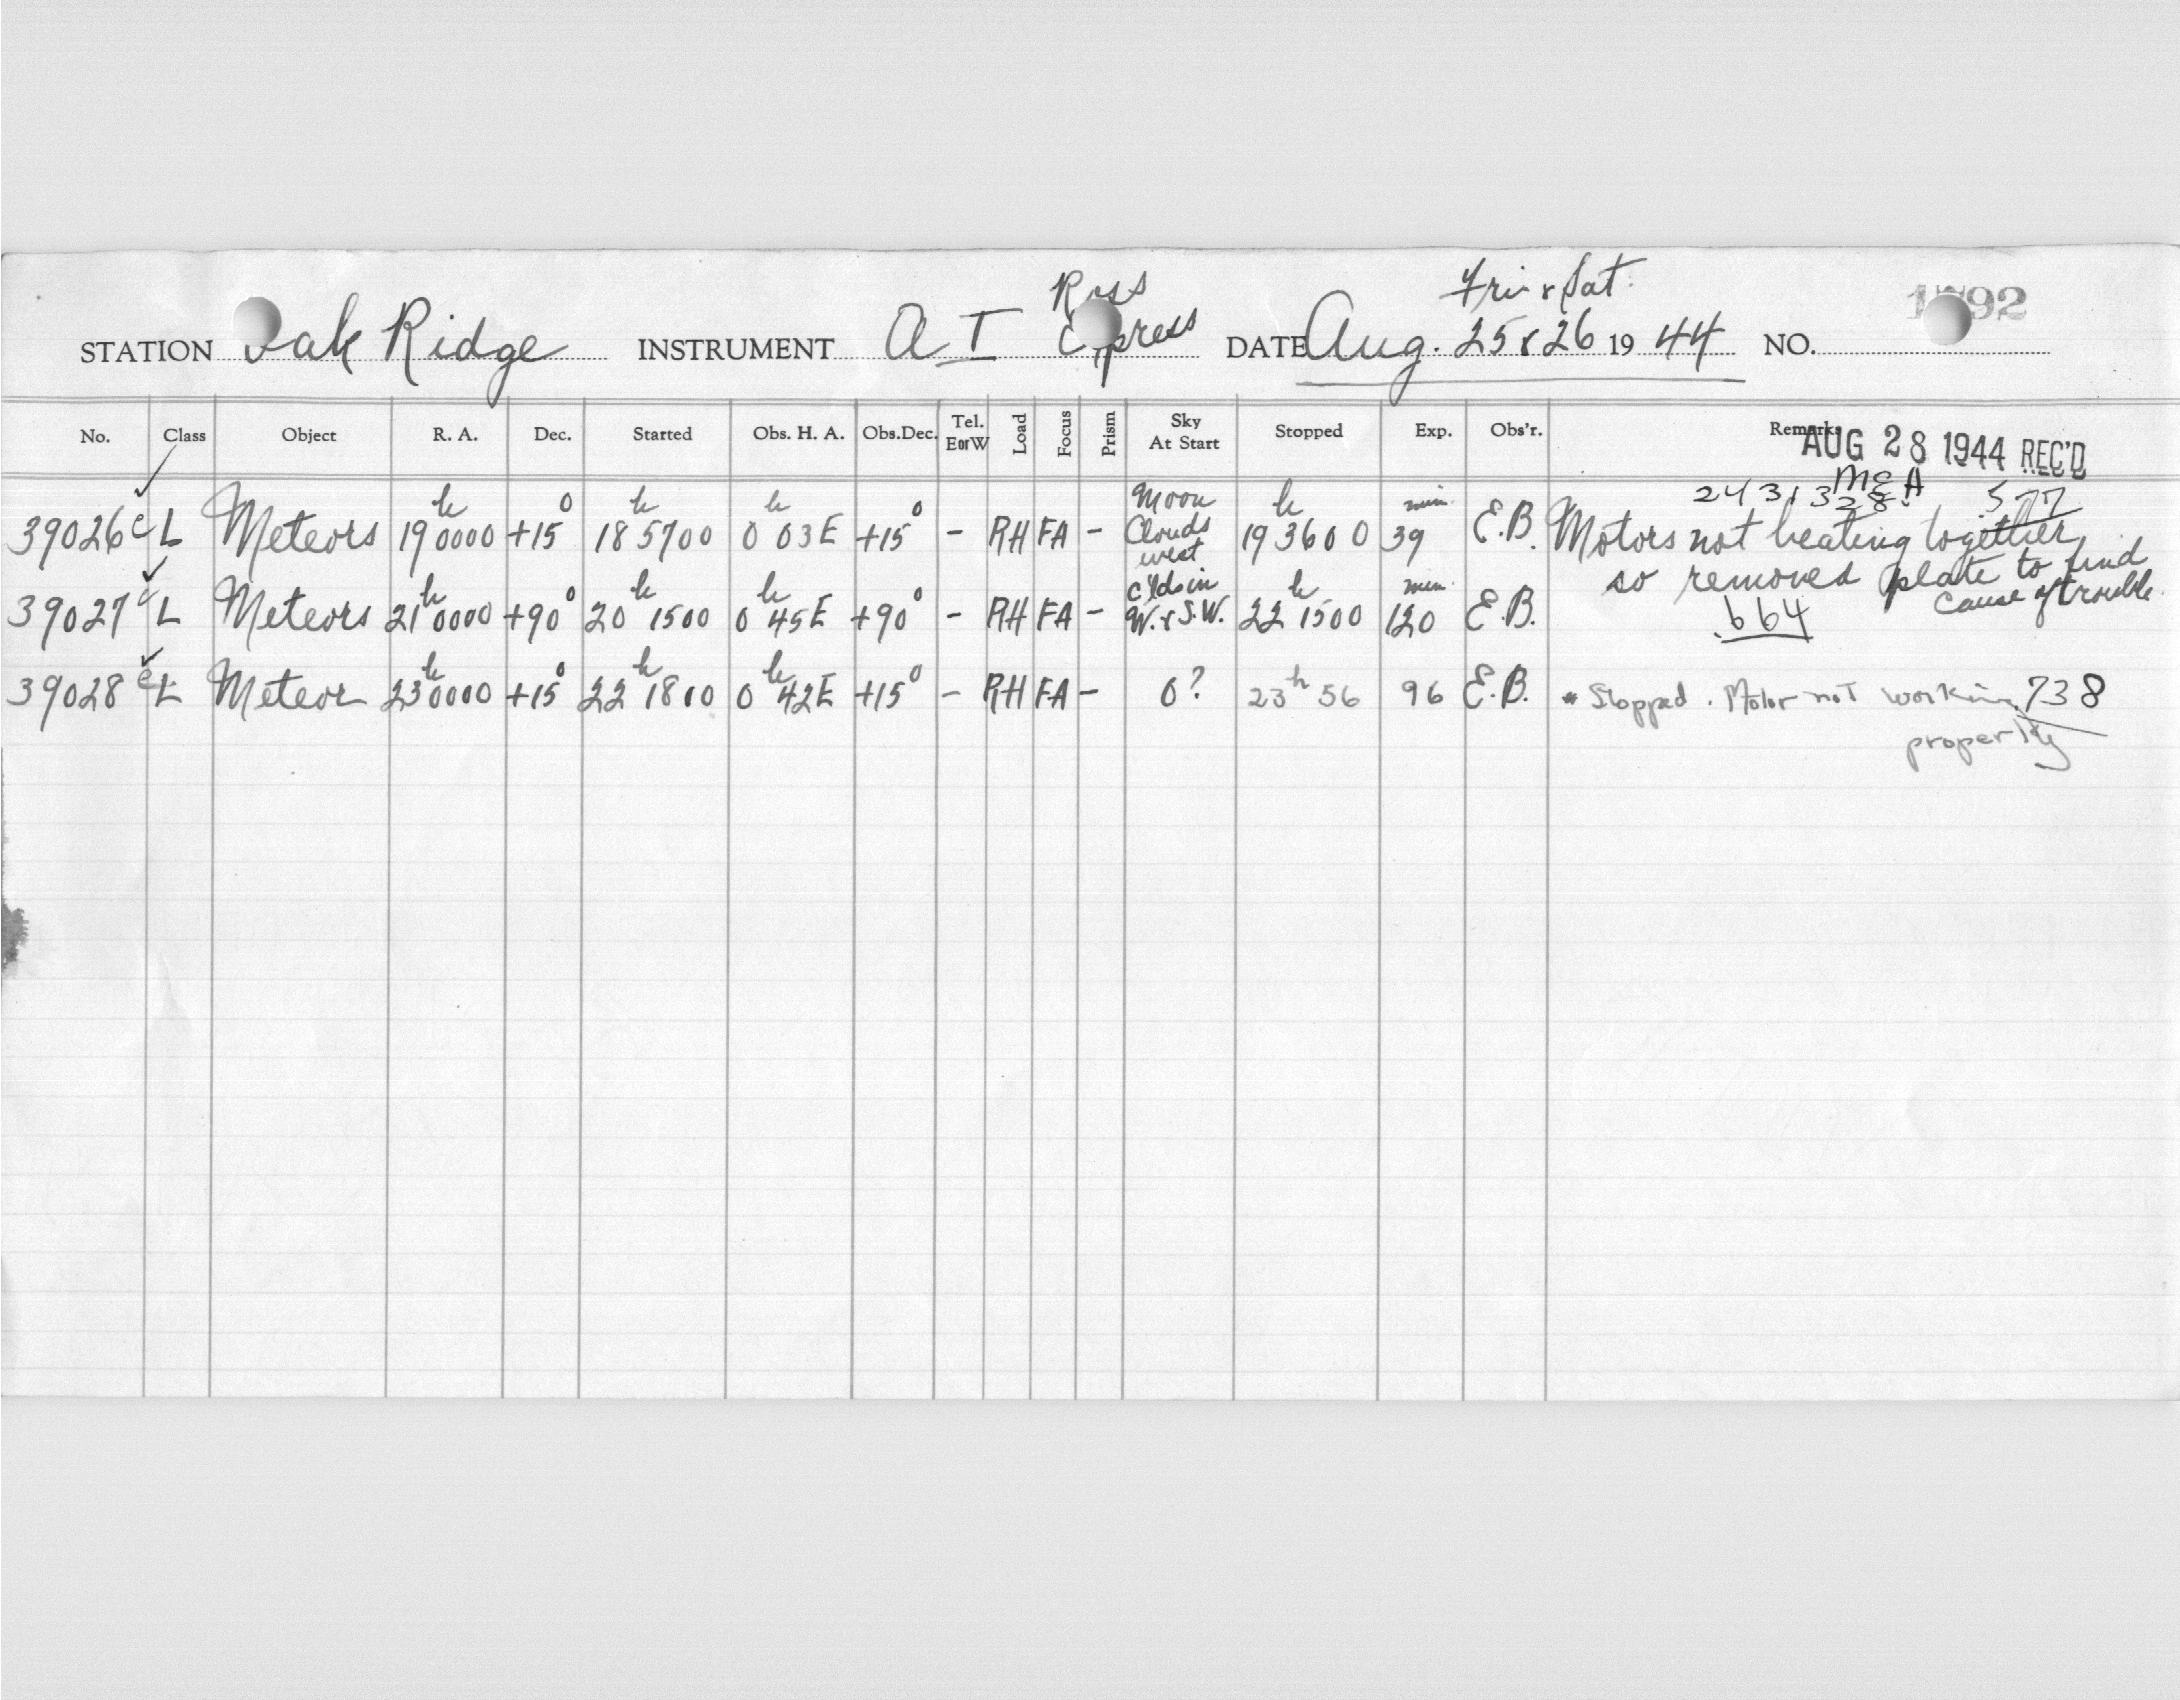 Fri & Sat.
Ross
STATION Oak Ridge INSTRUMENT A I Xpress DATE Aug. 25 & 26 19 44 NO. 92
No. Class Object R. A. Dec. Started Obs. H. A. Obs.Dec. Tel. E or W Load Focus Prism Sky At Start Stopped Exp. Obs'r. Remarks
AUG 28 1944 REC'D
M E A
243 1328. .577
39026 c L Meteors 19h 0000 +15° 18h 5700 0h 03E +15° - RH FA - Moon Clouds west 19h 3600 39 min. E.B. Motors not beating together
so removed plate to find
cause of trouble.
39027 c L Meteors 21h 0000 +90° 20h 1500 0h 45E +90° - RH FA - c'lds in W. & S.W. 22h 1500 120 min. E.B. .664
39028 c L Meteor 23h 0000 +15° 22h 1800 0h 42E +15° - RH FA - 0? 23h 56 96 E.B. * Stopped. Motor not working .738
properly